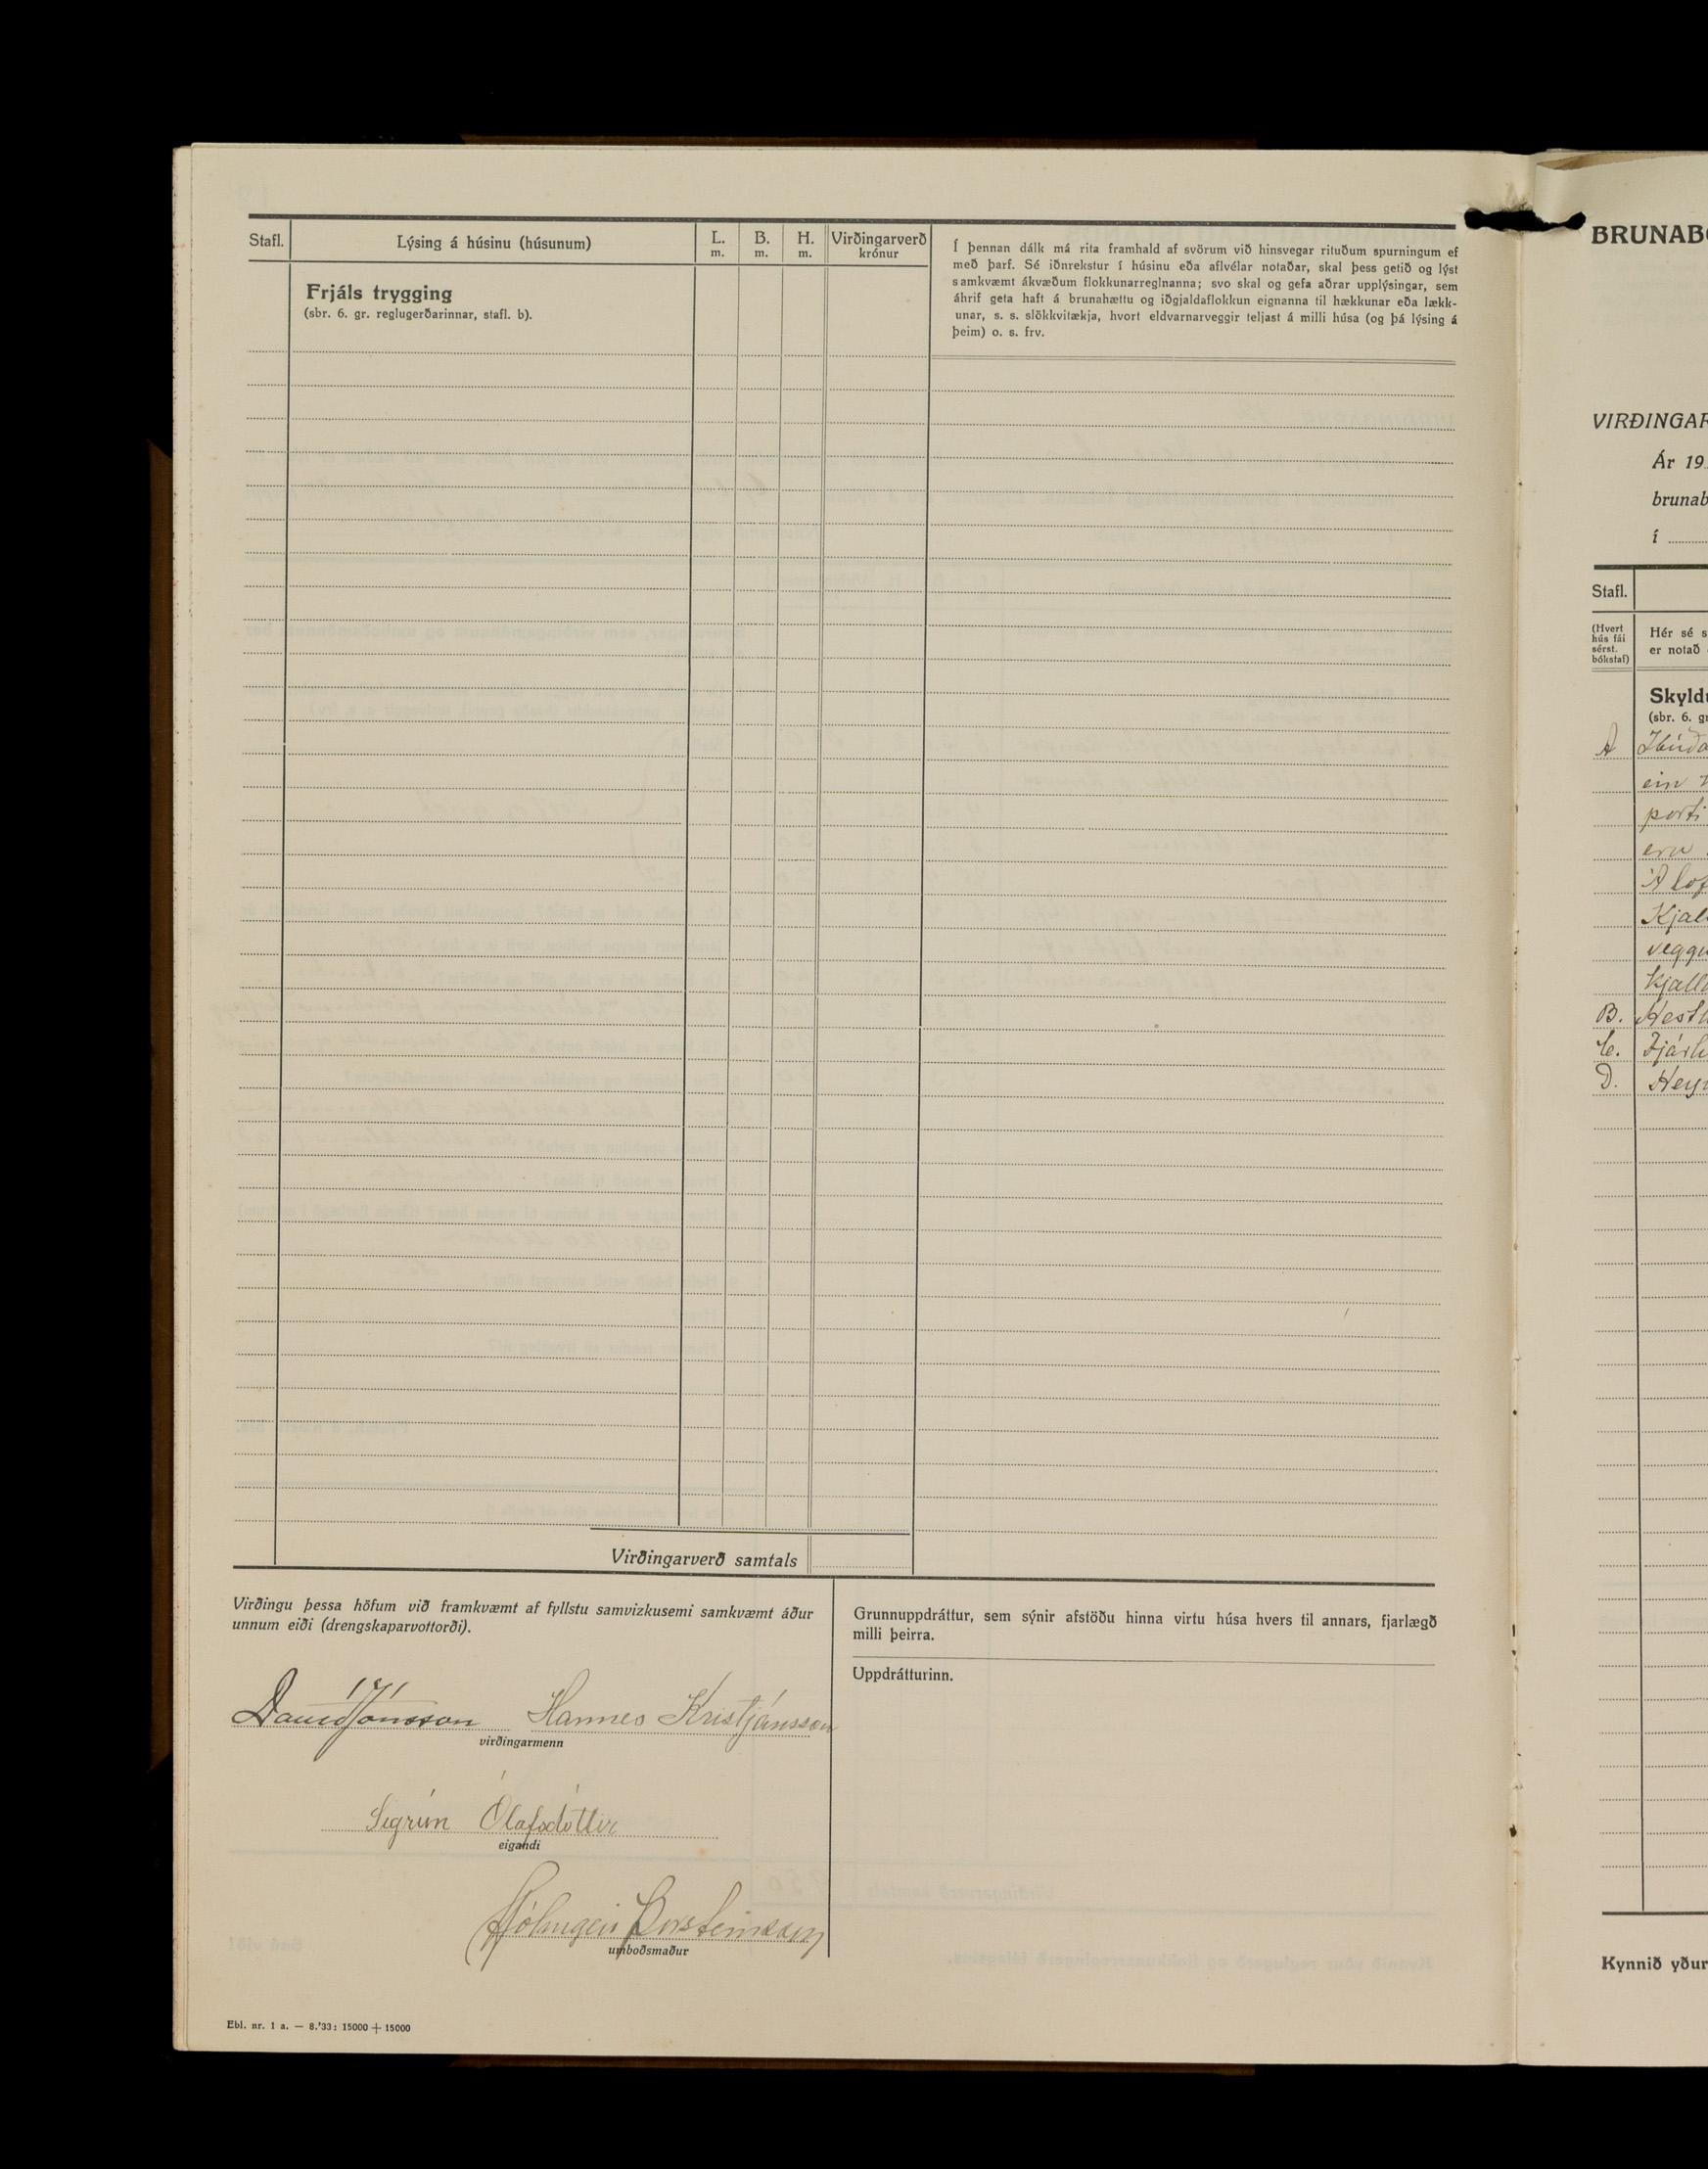 Stafl. Lýsing á húsinu (húsunum) L. m. B. m. H. m. Virðingarverð krónur
Frjáls trygging
(sbr. 6. gr. reglugerðarinnar, stafl. b).
Í þennan dálk má rita framhald af svörum við hinsvegar rituðum spurningum ef
með þarf. Sé iðnrekstur í húsinu eða aflvélar notaðar, skal þess getið og lýst
samkvæmt ákvæðum flokkunarreglnanna; svo skal og gefa aðrar upplýsingar, sem
áhrif geta haft á brunahættu og iðgjaldaflokkun eignanna til hækkunar eða lækk-
unar, s. s. slökkvitækja, hvort eldvarnarveggir teljast á milli húsa (og þá lýsing á
þeim) o. s. frv.
Virðingarverð samtals
Virðingu þessa höfum við framkvæmt af fyllstu samvizkusemi samkvæmt áður
unnum eiði (drengskaparvottorði).
Davíð Jónsson Hannes Kristjánsson
virðingarmenn
Sigrún Ólafsdóttir
eigandi
Hólmgeir Þorsteinsson
umboðsmaður
Grunnuppdráttur, sem sýnir afstöðu hinna virtu húsa hvers til annars, fjarlægð
milli þeirra.
Uppdrátturinn.
Ebl. nr. 1 a. — 8.'33: 15000 + 15000
BRUNAB
VIRÐINGAR
Ár 19
brunab
í
Stafl.
(Hvert
hús fái
sérst.
bókstaf)
Hér sé s
er notað
Skyldu
(sbr. 6. g
A Íbúða
ein
porti
eru
Á lof
Kjal
veggu
kjalla
B. Hesth
C. Fjárh
D. Hey
Kynnið yður